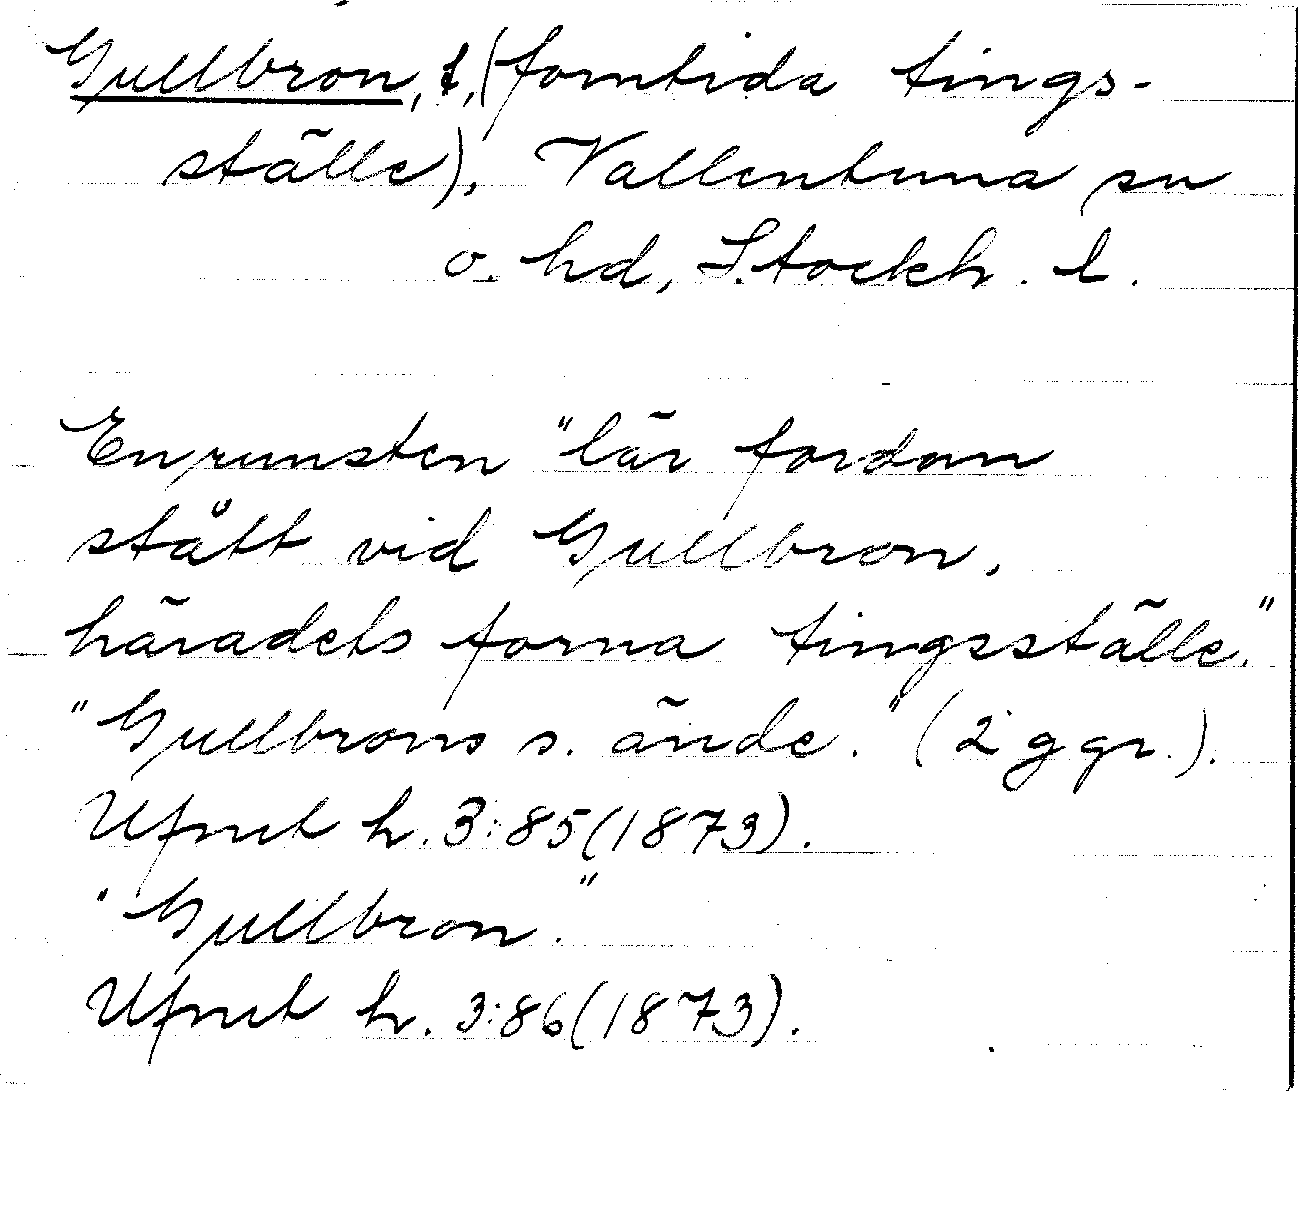 Gullbron, t, (forntida tings-
ställe), Vallentuna sn
o. hd, Stockh. l.
En runsten "lär fordom
stått vid Gullbron,
häradets forna tingsställe."
"Gullbrons s. ände." (2 ggr.).
Ufmt h. 3:85 (1873).
"Gullbron."
Ufmt h. 3:86 (1873).